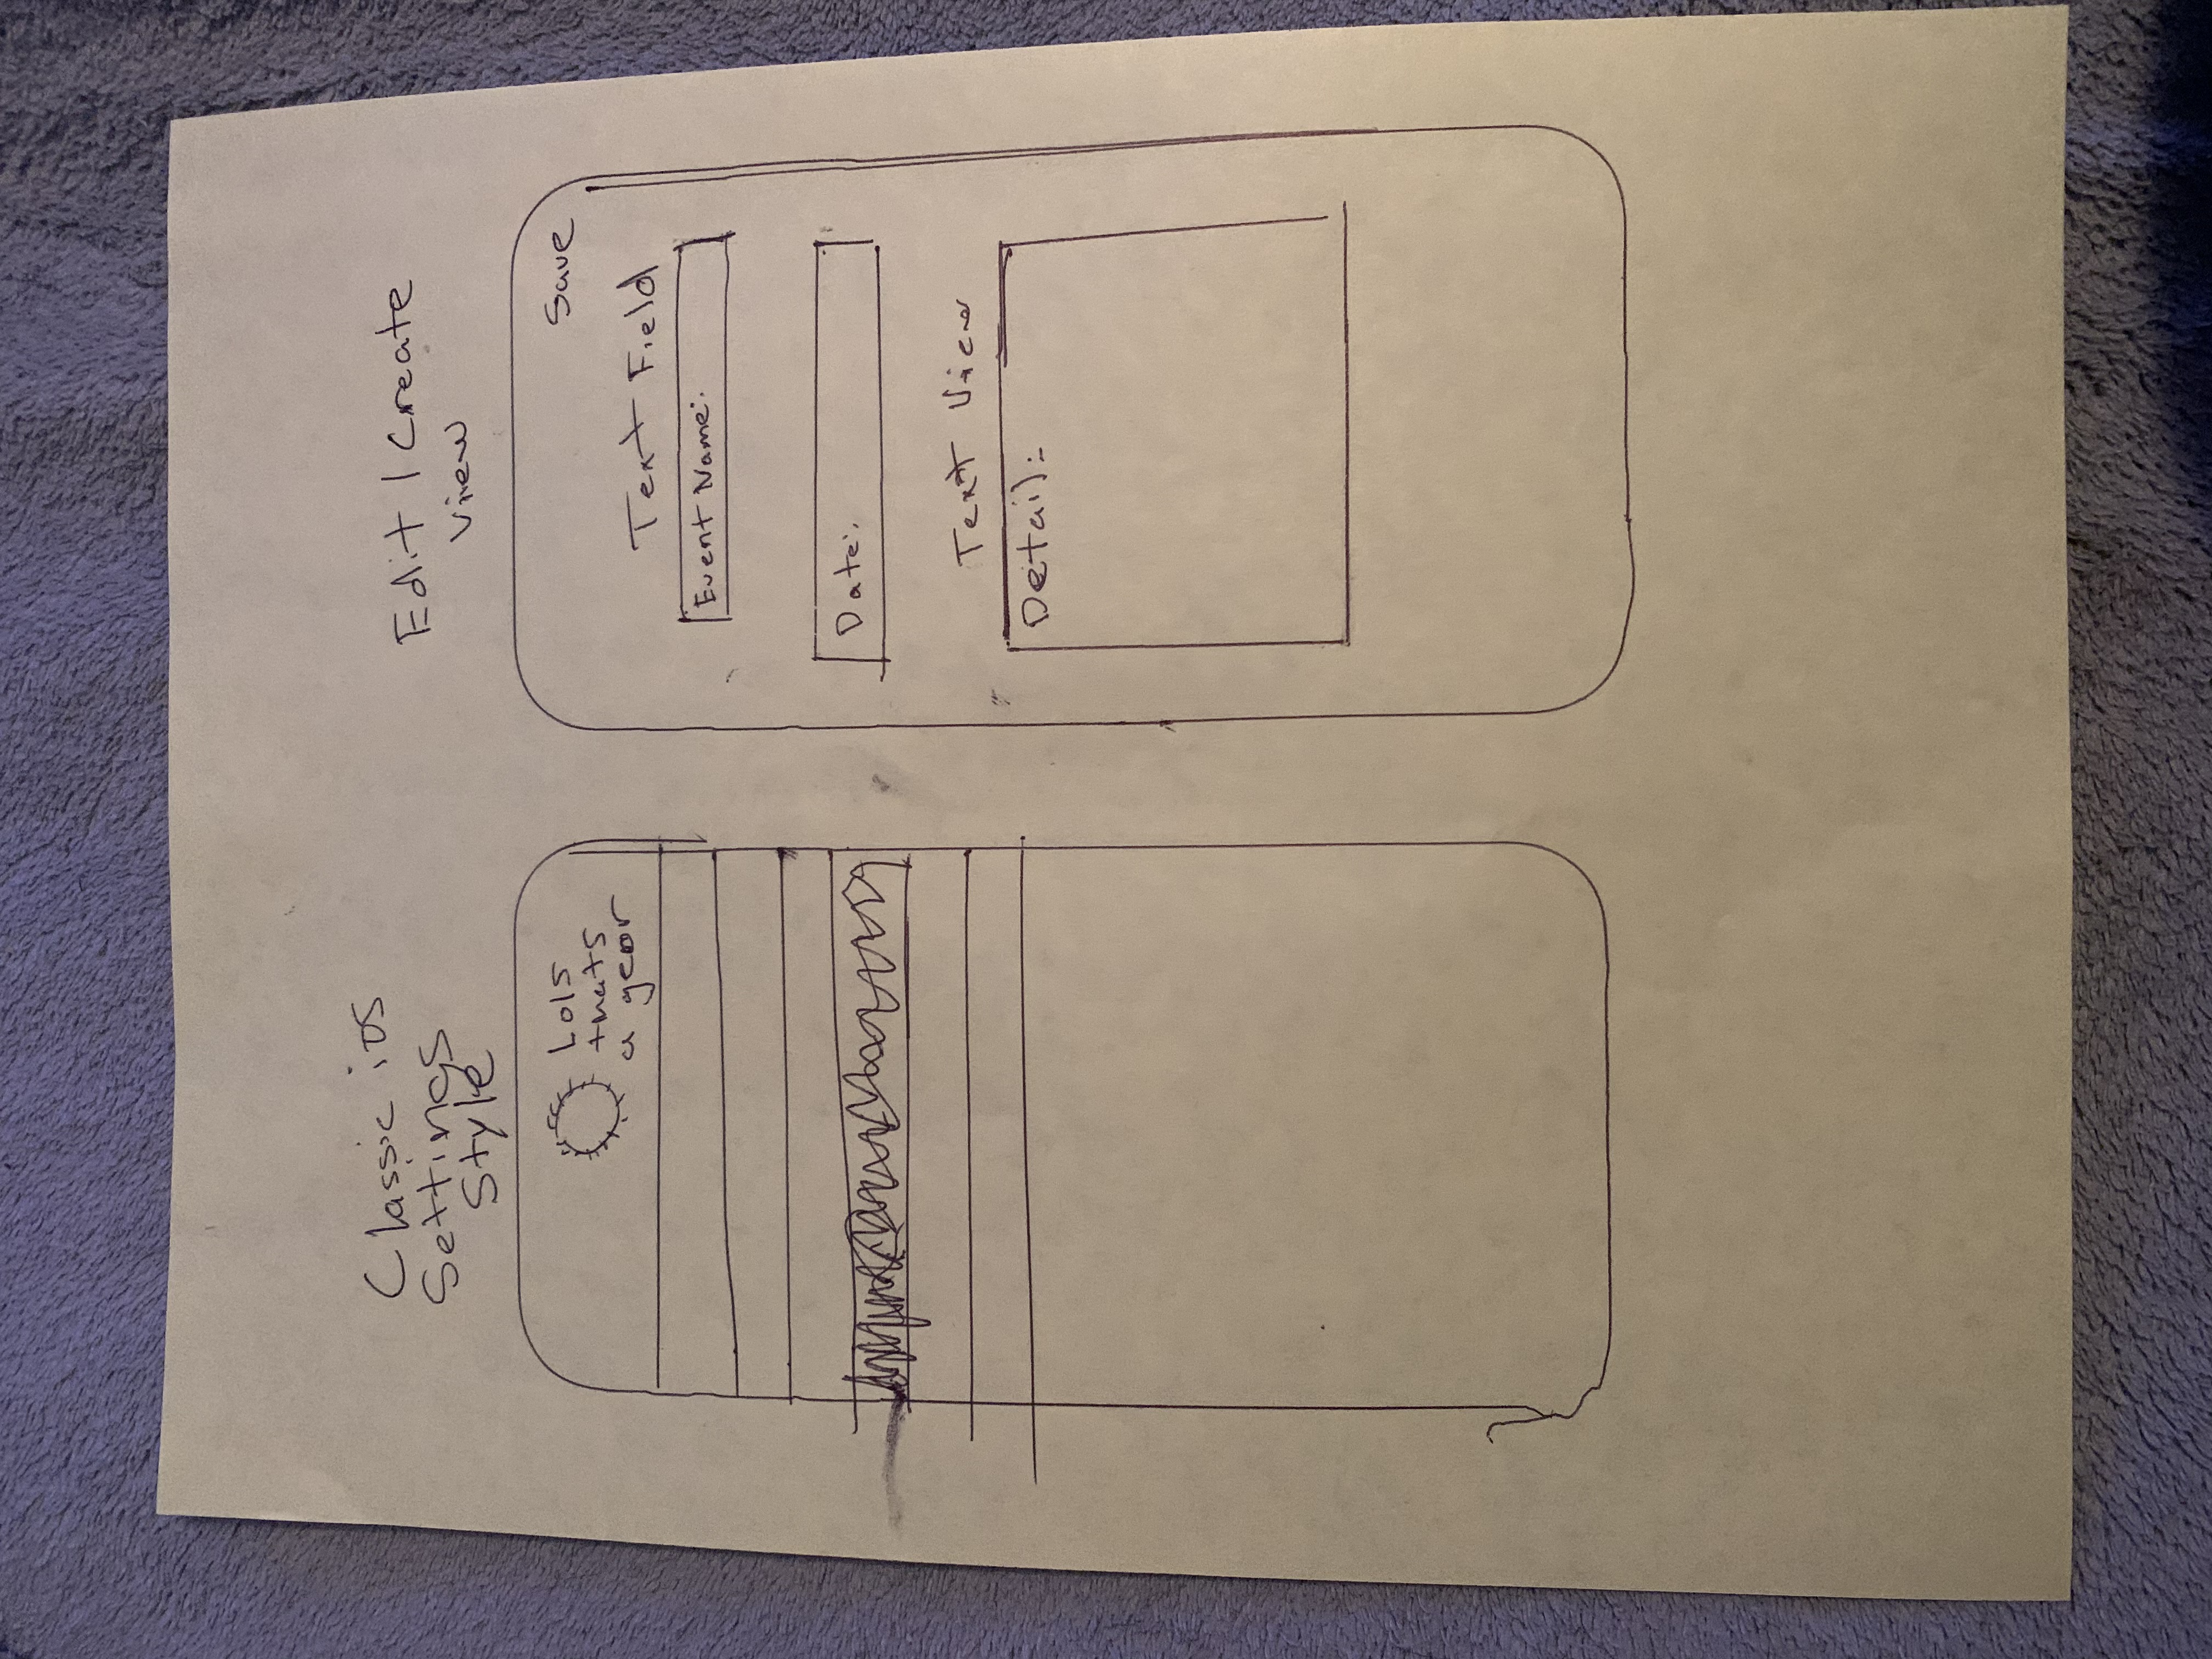 Classic iOS
Settings
Style
Lols
thats
a gear
Edit / Create
View
Save
Text Field
Event Name:
Date:
Text View
Detail: